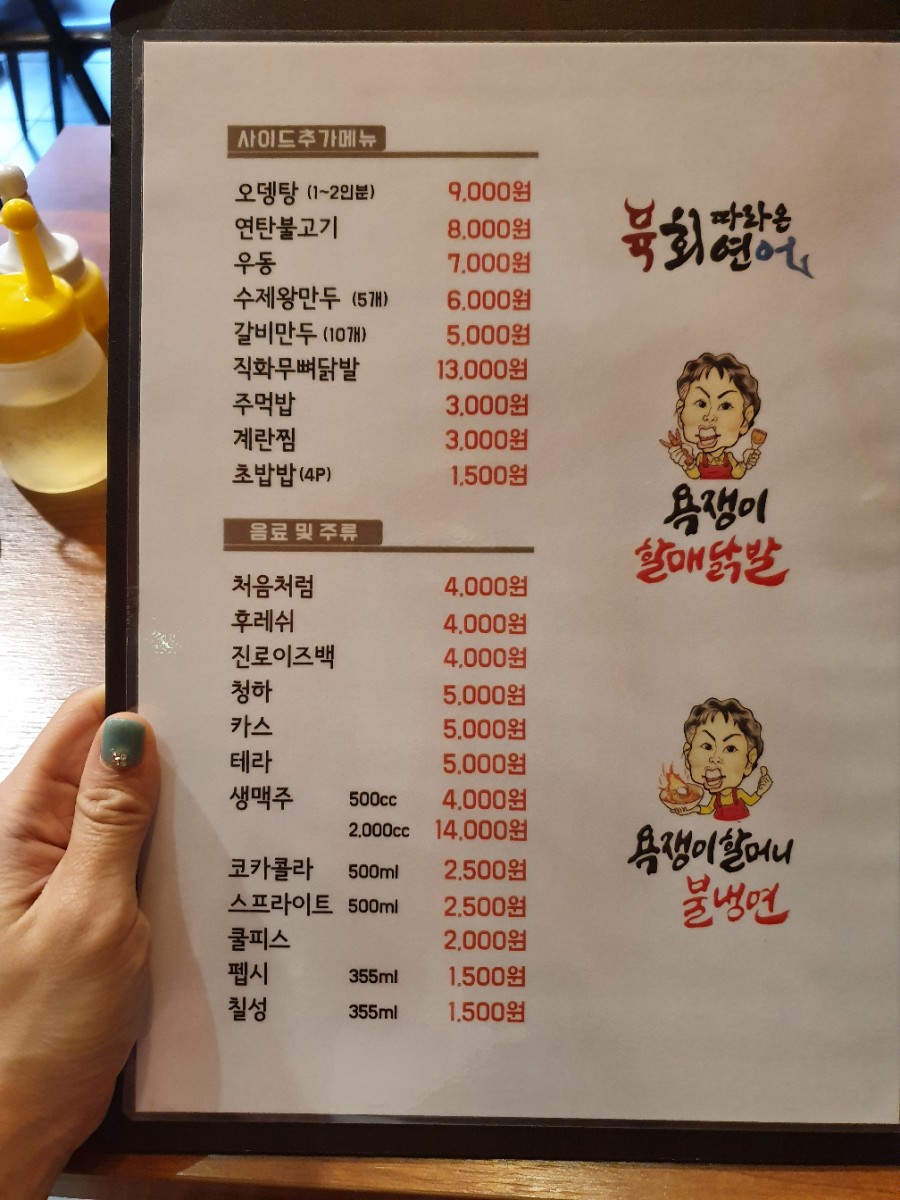 사이드추가메뉴
오뎅탕 (1~2인분) 9,000원
연탄불고기 8,000원
우동 7,000원
수제왕만두 (5개) 6,000원
갈비만두 (10개) 5,000원
직화무뼈닭발 13,000원
주먹밥 3,000원
계란찜 3,000원
초밥밥(4P) 1,500원
음료 및 주류
처음처럼 4,000원
후레쉬 4,000원
진로이즈백 4,000원
청하 5,000원
카스 5,000원
테라 5,000원
생맥주 500cc 4,000원
2,000cc 14,000원
코카콜라 500ml 2,500원
스프라이트 500ml 2,500원
쿨피스 2,000원
펩시 355ml 1,500원
칠성 355ml 1,500원
육회 따라온
연어
욕쟁이
할매닭발
욕쟁이할머니
불냉면